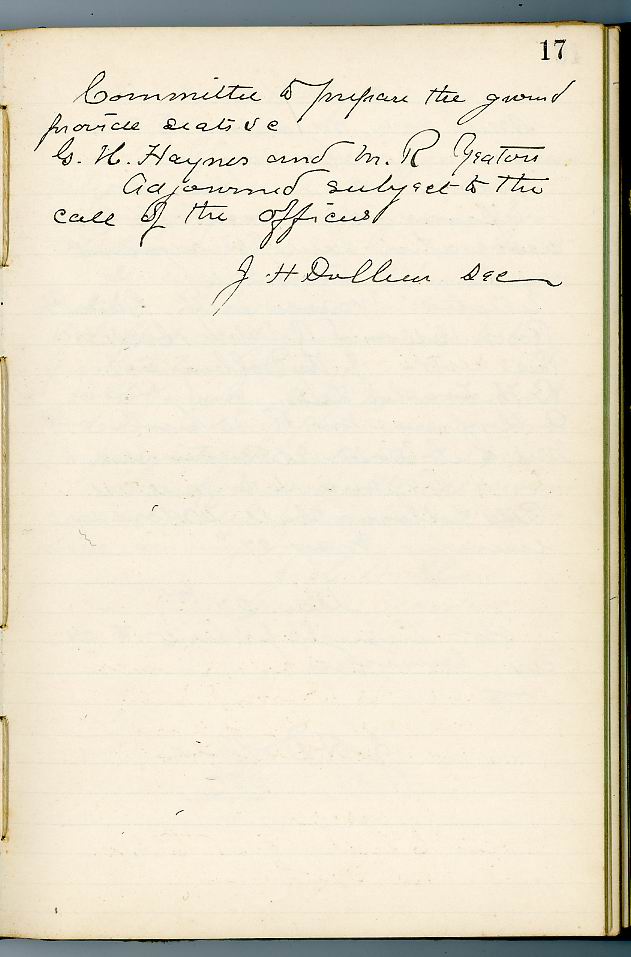 17
Committee to prepare the ground
provide seats &c
G. H. Haynes and M. R Yeaton
Adjourned subject to the
call of the officers
J H Dolliver Sec